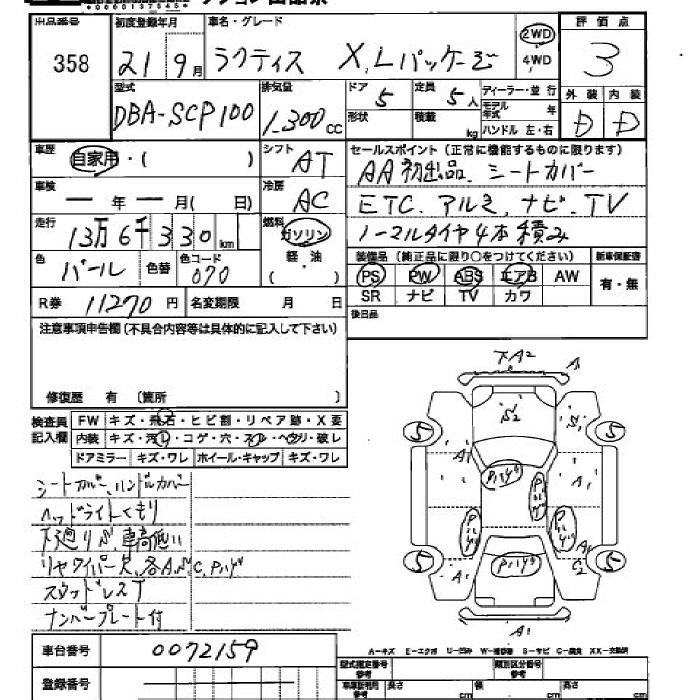 出品番号 初度登録年月 車名・グレード 評価点
358 21 9月 ラクティス X,Lパッケージ 2WD 4WD 3
型式 排気量 ドア 5 定員 5人 ディーラー・並行 外装 内装
DBA-SCP100 1,300cc 形状 積載 kg モデル年式 年 D D
ハンドル 左・右
車歴 自家用・( ) シフト AT セールスポイント (正常に機能するものに限ります)
AA初出品、シートカバー
車検 ー年ー月(日) 冷房 AC ETC.アルミ,ナビ.TV
走行 13万6千330km 燃料 ガソリン 軽・油 ( ) ノーマルタイヤ4本積み
色 パール 色替 色コード 070 装備品 (純正品に限り○をつけてください) 新車保証書
PS PW ABS エアB AW 有・無
R券 11270円 名変期限 月 日 SR ナビ TV カワ
注意事項申告欄(不具合内容等は具体的に記入して下さい) 後日品
修復歴 有 〔箇所 〕
検査員記入欄 FW キズ・飛石・ヒビ割・リペア跡・X要
内装 キズ・汚レ・コゲ・穴・スレ・ヘタリ・破レ
ドアミラー キズ・ワレ ホイール・キャップ キズ・ワレ
シートカバー、ハンドルカバー
ヘッドライトくもり
下廻りS、車高低い
リヤワイパー欠、各A,S,C,Pハゲ
スタッドレスT
ナンバープレート付
下A2 A
S2
5 5
A1 A1
Pハゲ Pハゲ
Pハゲ Pハゲ
A1 C2
5 A1 Pハゲ 5
A1
A-キズ E-エクボ U-凹み W-補修跡 S-サビ C-腐食 XX-交換済
車台番号 0072159
登録番号
型式指定番号 類別区分番号
長さ cm 幅 cm 高さ cm